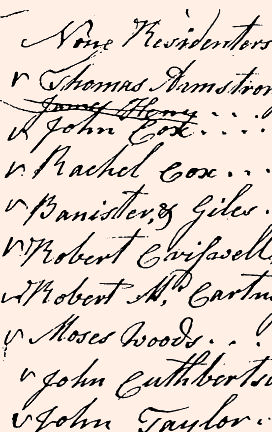 None Residenters
v Thomas Armstron
James Heny
v John Cox....
v Rachel Cox...
v Banister, & Giles.
v Robert Criswell
v Robert Mc Cartn
v Moses Woods...
v John Cuthberts
v John Taylor..